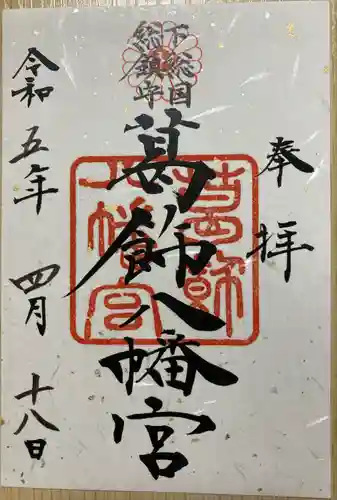 奉拝
下総国
総鎮守
葛飾八幡宮
令和五年四月十八日
葛飾
八幡宮